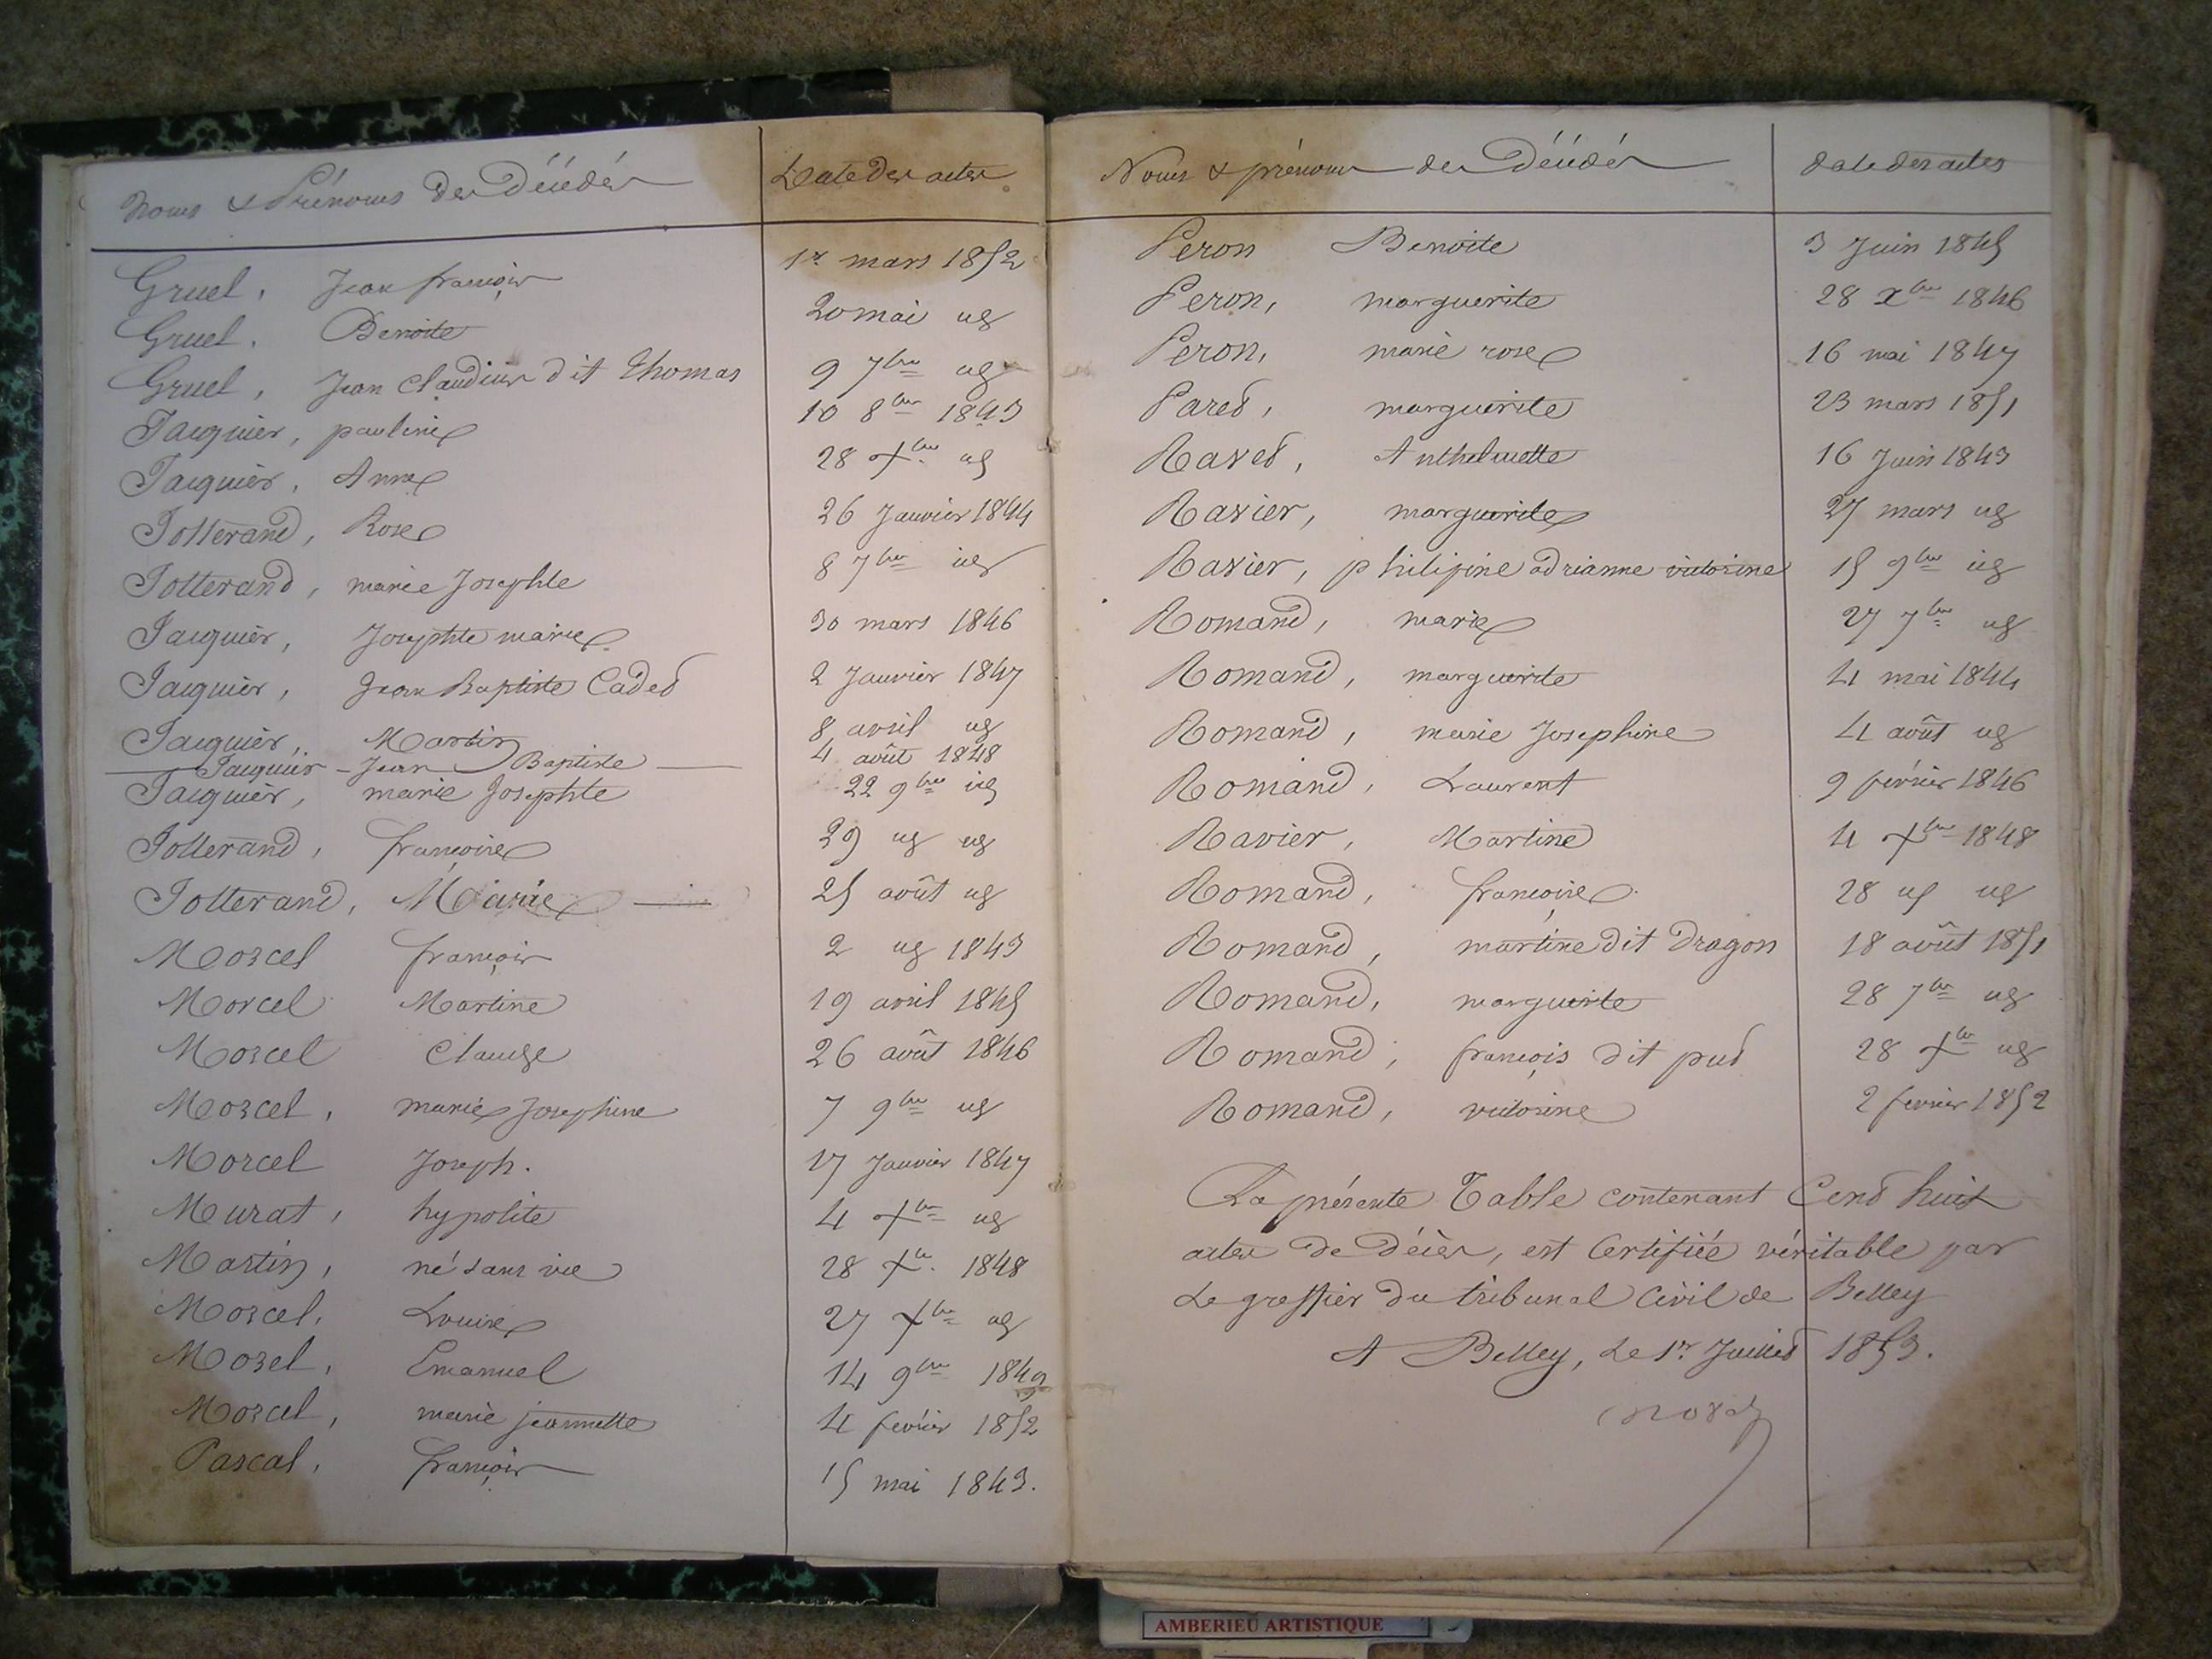 Noms & Prénoms des Décédés Date des actes
Gruel, Jean françois 1er mars 1852
Gruel, Benoite 20 mai id
Gruel, Jean Claudius dit Thomas 9 7bre id
Jacquier, pauline 10 8bre 1843
Jacquier, Anne 28 Xbre id
Jotterand, Rose 26 Janvier 1844
Jotterand, marie Josephte 8 7bre id
Jacquier, Josephte marie 30 mars 1846
Jacquier, Jean Baptiste Cadet 2 Janvier 1847
Jacquier, Martin 8 avril id
Jacquier - Jean Baptiste 4 août 1848
Jacquier, marie Josephte 22 9bre id
Jotterand, françoise 29 id id
Jotterand, Marie 25 août id
Morcel françois 2 id 1843
Morcel Martine 19 avril 1845
Morcel Claude 26 août 1846
Morcel, marie Josephine 7 9bre id
Morcel Joseph. 17 Janvier 1847
Murat, hypolite 4 Xbre id
Martin, né sans vie 28 Xbre 1848
Morcel, Louise 27 Xbre id
Morel, Emanuel 14 9bre 1849
Morcel, marie jeannette 4 février 1852
Pascal, françois 15 mai 1843.
Noms & prénoms des Décédés date des actes
Peron Benoite 3 Juin 1845
Peron, marguerite 28 xbre 1846
Peron, marie rose 16 mai 1847
Paret, marguerite 23 mars 1851
Ravet, Anthelmette 16 Juin 1843
Ravier, marguerite 27 mars id
Ravier, philipine adrianne victorine 15 9bre id
Romand, marie 27 7bre id
Romand, marguerite 4 mai 1844
Romand, marie Josephine 4 août id
Romand, Laurent 9 février 1846
Ravier, Martine 4 Xbre 1848
Romand, françoise 28 id id
Romand, martine dit Dragon 18 août 1851
Romand, marguerite 28 7bre id
Romand, françois dit put 28 Xbre id
Romand, victorine 2 février 1852
La présente Table contenant Cent huit
actes de Décès, est Certifiée véritable par
Le greffier du tribunal Civil de Belley
A Belley, Le 1er Juillet 1853.
AMBERIEU ARTISTIQUE